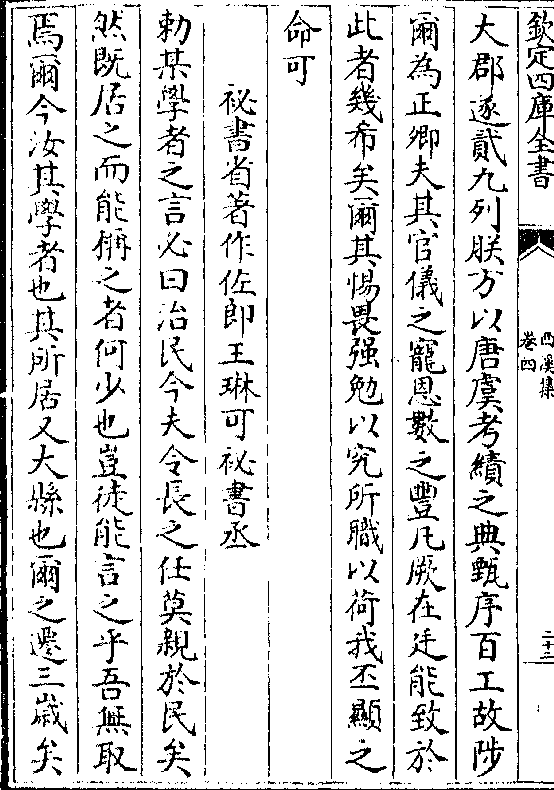 欽定四庫全書
西溪集
卷四
二十三
大郡遂貳九列朕方以唐虞考績之典甄序百工故陟
爾為正卿夫其官儀之寵恩數之豐凡厥在廷能致於
此者幾希矣爾其惕畏强勉以究所職以荷我丕顯之
命可
祕書省著作佐郎王琳可祕書丞
勅某學者之言必曰治民今夫令長之任莫親於民矣
然既居之而能稱之者何少也豈徒能言之乎吾無取
焉爾今汝其學者也其所居又大縣也爾之遷三歲矣